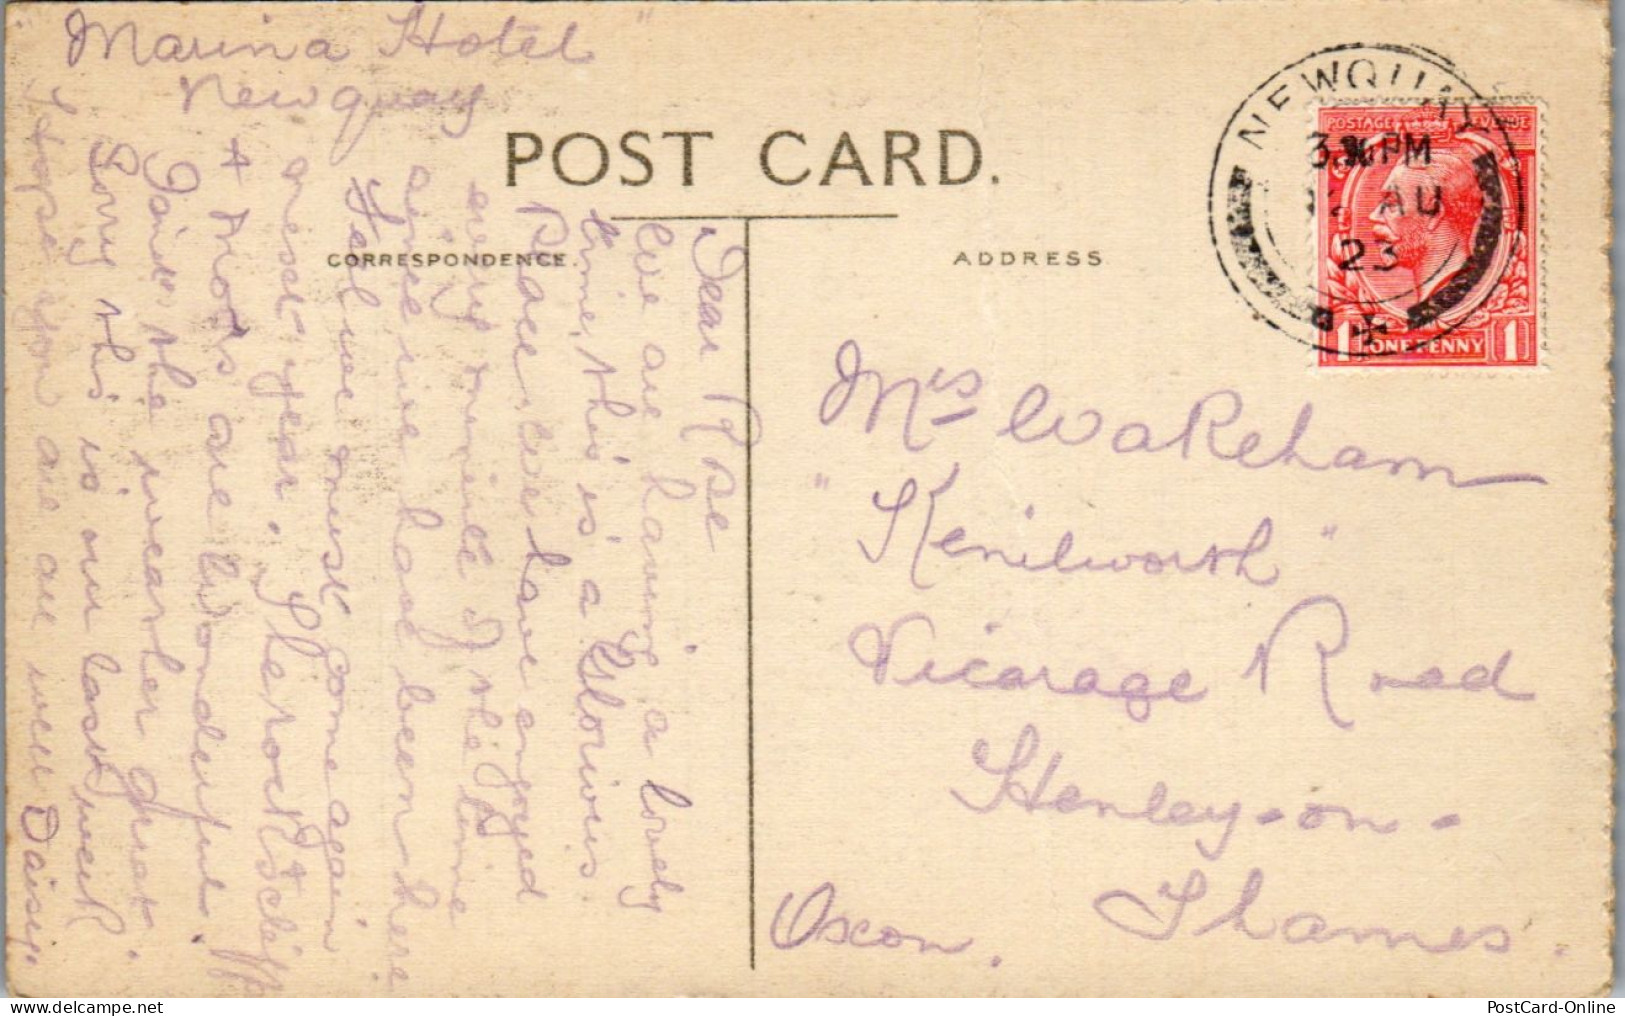 "Marina Hotel"
Newquay
POST CARD.
CORRESPONDENCE.
ADDRESS
Dear Rose
We are having a lovely
time, this is a Glorious
Place, we have enjoyed
every minute of the time
since we have been here
Feel we must come again
next year. The rocks & cliffs
& moors are wonderful.
Taint the weather great.
Sorry this is our last week
Hope you are all well Daisy.
NEWQUAY
3.30 PM
AU
23
POSTAGE REVENUE
1 ONE PENNY 1
Mrs Wakeham
"Kenilworth"
Vicarage Road
Henley-on-
Thames.
Oxon.
PostCard-Online